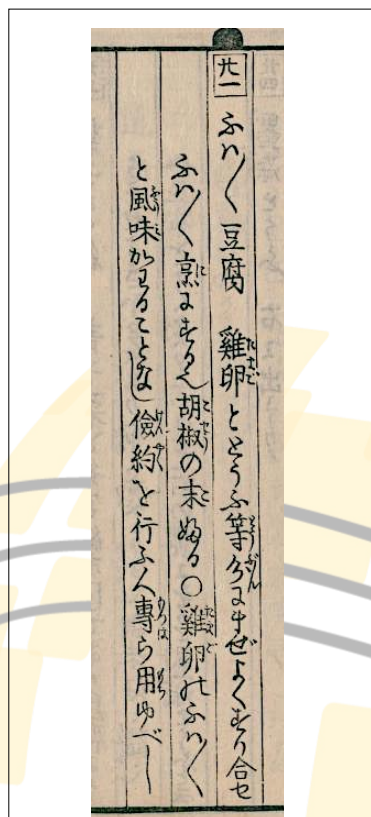 廿一 ふハ〳〵豆腐 雞卵ととうふ等分にまぜよくすり合せ
ふハ〳〵烹にする也胡椒の末ふる○雞卵のふハ〳〵
と風味かわることなし儉約を行ふ人專ら用ゆべし